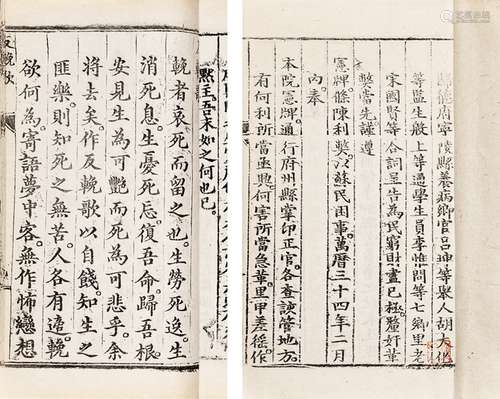 歸德府寧陵縣養病鄉官呂坤等舉人胡大化
等監生殷上等遺學生員李惟問等七鄉里老
宋國賢等合詞呈告為民窮財盡已極釐奸革
弊當先謹遵
憲牌條陳利獘以蘇民困事萬曆三十四年二月
內奉
本院憲牌通行府州縣掌印正官各查該管地方
有何利所當亟興何害所當急革里甲差徭作
黙主吾末如之何也已
輓者哀死而留之也生勞死逸生
消死息生憂死忘復吾命歸吾根
安見生為可艷而死為可悲乎余
將去矣作反輓歌以自餞知生之
匪樂則知死之無苦人各有造輓
欲何為寄語夢中客無作怖戀想
反輓歌